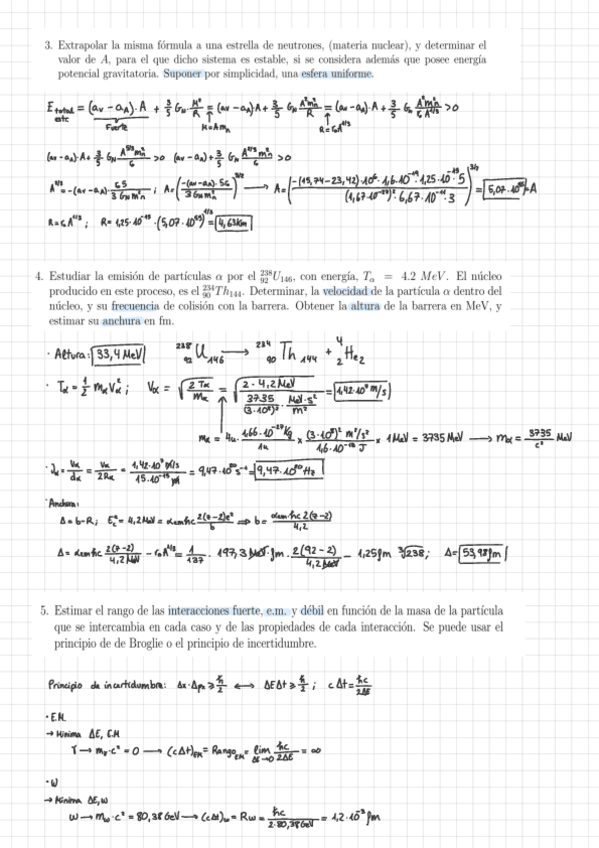 3. Extrapolar la misma fórmula a una estrella de neutrones, (materia nuclear), y determinar el
valor de A, para el que dicho sistema es estable, si se considera además que posee energía
potencial gravitatoria. Suponer por simplicidad, una esfera uniforme.
E_total etc = (a_V - a_A)·A + 3/5 G_N M²/R = (a_V - a_A)A + 3/5 G_N A²m_n²/R = (a_V - a_A)·A + 3/5 G_N A²m_n²/r_0A^1/3 > 0
Fuerte M=Am_n R=r_0A^1/3
(a_V - a_A)·A + 3/5 G_N A^5/3 m_n²/r_0 > 0 (a_V - a_A) + 3/5 G_N A^2/3 m_n²/r_0 > 0
R = r_0A^1/3; R = 1,25·10^-15·(5,07·10^55)^1/3 = 4,63Km
4. Estudiar la emisión de partículas α por el ²³⁸₉₂U₁₄₆, con energía, T_α = 4.2 MeV. El núcleo
producido en este proceso, es el ²³⁴₉₀Th₁₄₄. Determinar, la velocidad de la partícula α dentro del
núcleo, y su frecuencia de colisión con la barrera. Obtener la altura de la barrera en MeV, y
estimar su anchura en fm.
· Altura: 33,4 MeV ²³⁸₉₂U₁₄₆ → ²³⁴₉₀Th₁₄₄ + ⁴₂He₂
· T_α = 1/2 m_αV_α²; V_α = √(2T_α/m_α) = √(2·4,2MeV / 3735/(3·10⁸)² MeV·s²/m²) = 1,42·10⁷ m/s
m_α = 4u · 1,66·10^-27 Kg/1u × (3·10⁸)² m²/s²/1,6·10^-13 J × 1MeV = 3735 MeV → m_α = 3735/c² MeV
= V_α/d_α = V_α/2R_α = 9,47·10²⁰ s⁻¹ = 9,47·10²⁰ Hz
· Anchura:
Δ = b - R; = 4,2MeV = α_em ħc 2(z-2)e²/b ⇒ b = α_em ħc 2(z-2)/4,2
Δ = α_em ħc 2(z-2)/4,2MeV - r_0A^1/3 = 1/137 · 197,3 MeV·fm · 2(92-2)/4,2MeV - 1,25fm ∛238; Δ = 53,98fm
5. Estimar el rango de las interacciones fuerte, e.m. y débil en función de la masa de la partícula
que se intercambia en cada caso y de las propiedades de cada interacción. Se puede usar el
principio de de Broglie o el principio de incertidumbre.
Principio de incertidumbre: Δx·Δp_x ≥ ħ/2 ⟷ ΔEΔt ≥ ħ/2; cΔt = ħc/2ΔE
· E.M.
→ Mínima ΔE, E.M
γ → m_γ·c² = 0 → (cΔt)_EM = Rango_EM = lim ΔE→0 ħc/2ΔE = ∞
· W
→ Mínima ΔE,W
W → m_W·c² = 80,38GeV → (cΔt)_W = R_W = ħc/2·80,38GeV = 1,2·10⁻³ fm